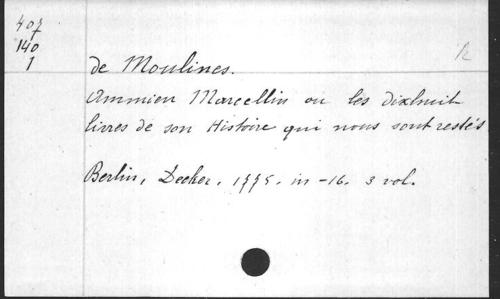 407
140
1
R
de Moulines.
Ammien Marcellin ou les dixhuit
livres de son Histoire qui nous sont restés
Berlin, Decker, 1775. in -16. 3 vol.